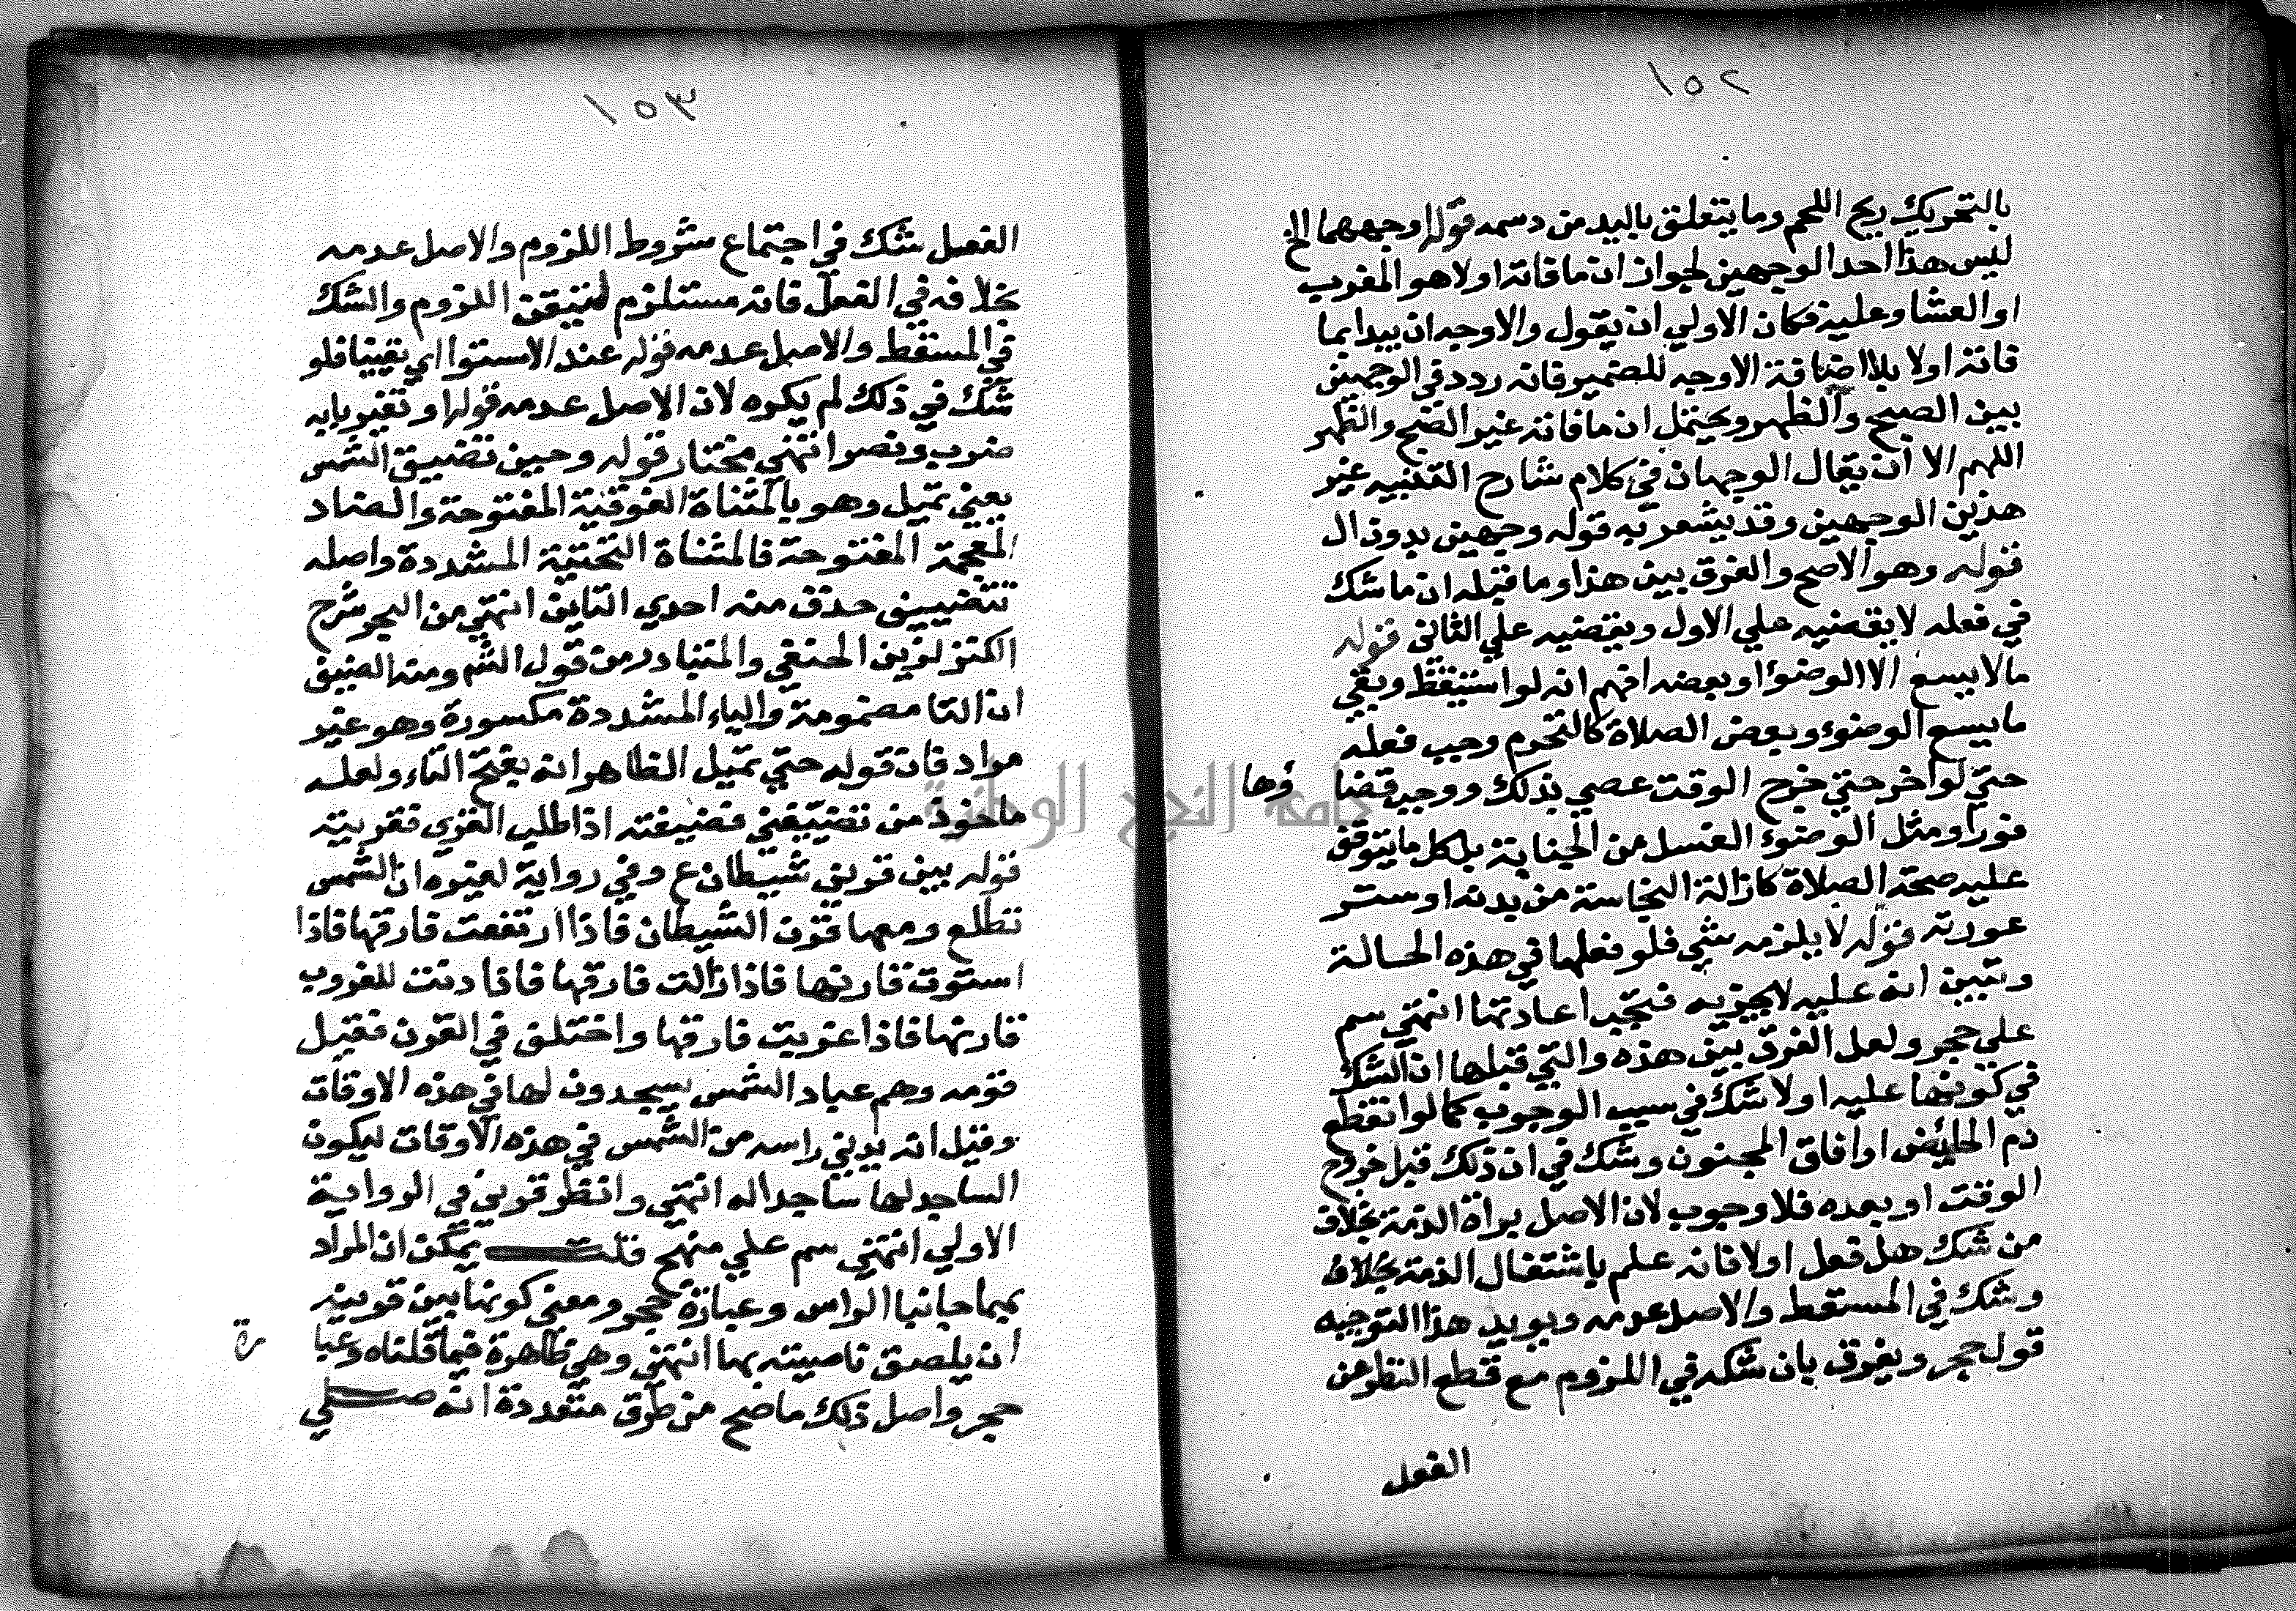 ١٥٢
بالتحريك ريح اللحم وما يتعلق باليد من دسمه قوله اوجههما الخ
ليس هذا احد الوجهين لجواز ان ما فاته اولا هو المغرب
او العشا وعليه فكان الاولي ان يقول والاوجه ان يبدا بما
فاته اولا بلا اضافة الاوجه للضمير فانه ردد في الوجهين
بين الصبح والظهر ويحتمل ان ما فاته غير الصبح والظهر
اللهم الا ان يقال الوجهان في كلام شارح التنبيه غير
هذين الوجهين وقد يشعر به قوله وجهين بدون ال
قوله وهو الاصح والفرق بين هذا وما قبله ان ما شك
في فعله لا يقضيه علي الاول ويقضيه علي الثاني قوله
ما لا يسع الا الوضؤ او بعضه افهم انه لو استيقظ وبقي
ما يسع الوضوء وبعض الصلاة كالتحرم وجب فعله
حتي لو اخر حتي خرج الوقت عصي بذلك ووجب قضا ؤها
فورا ومثل الوضوء الغسل من الجنابة بل كل ما يتوقف
عليه صحة الصلاة كازالة النجاسة من بدنه او ستر
عورته قوله لا يلزمه شي فلو فعلها في هذه الحالة
وتبين انه عليه لا يجزيه فتجب اعادتها انتهي سم
علي حجر ولعل الفرق بين هذه والتي قبلها ان الشك
في كونها عليه اولا شك في سبب الوجوب كما لو انقطع
دم الحائض او افاق المجنون وشك في ان ذلك قبل خروج
الوقت او بعده فلا وجوب لان الاصل براة الذمة بخلاف
من شك هل فعل اولا فانه علم باشتغال الذمة بخلاف
وشك في المسقط والاصل عدمه ويويد هذا التوجيه
قول حجر ويفرق بان شكه في اللزوم مع قطع النظر عن
الفعل
١٥٣
الفعل شك في اجتماع شروط اللزوم والاصل عدمه
بخلافه في الفعل فانه مستلزم لتيقن اللزوم والشك
في المسقط والاصل عدمه قوله عند الاستوا اي يقينا فلو
شك في ذلك لم يكره لان الاصل عدمه قوله او تغير بابه
ضرب ونصر انتهي مختار قوله وحين تضيق الشمس
يعني تميل وهو بالمثناة الفوقية المفتوحة والضاد
المعجمة المفتوحة فالمثناة التحتية المشددة واصله
تتضيف حذف منه احدي التاين انتهي من البحر شرح
الكنز لزين الحنفي والمتبادر من قول الشم ومنه الضيف
ان التا مضمومة والياء المشددة مكسورة وهو غير
مراد فان قوله حتي تميل الظاهر انه بفتح التاء ولعله
ماخوذ من تضيفني فضيفته اذا طلب القري فقريته
قوله بين قرني شيطان ع وفي رواية لغيره ان الشمس
تطلع ومعها قرن الشيطان فاذا ارتفعت فارقها فاذا
استوت قارنها فاذا زالت فارقها فاذا دنت للغروب
قارنها فاذا غربت فارقها واختلف في القرن فقيل
قومه وهم عباد الشمس يسجدون لها في هذه الاوقات
وقيل انه يدني راسه من الشمس في هذه الاوقات ليكون
الساجد لها ساجدا له انتهي وانظر قرني في الرواية
الاولي انتهي سم علي منهج قلت يمكن ان المراد
بهما جانبا الراس وعبارة حجر ومعني كونها بين قرنيه
ان يلصق ناصيته بها انتهي وهي ظاهرة فيما قلناه وعبا رة
حجر واصل ذلك ما صح من طرق متعددة انه صلي
جامعة النجاح الوطنية